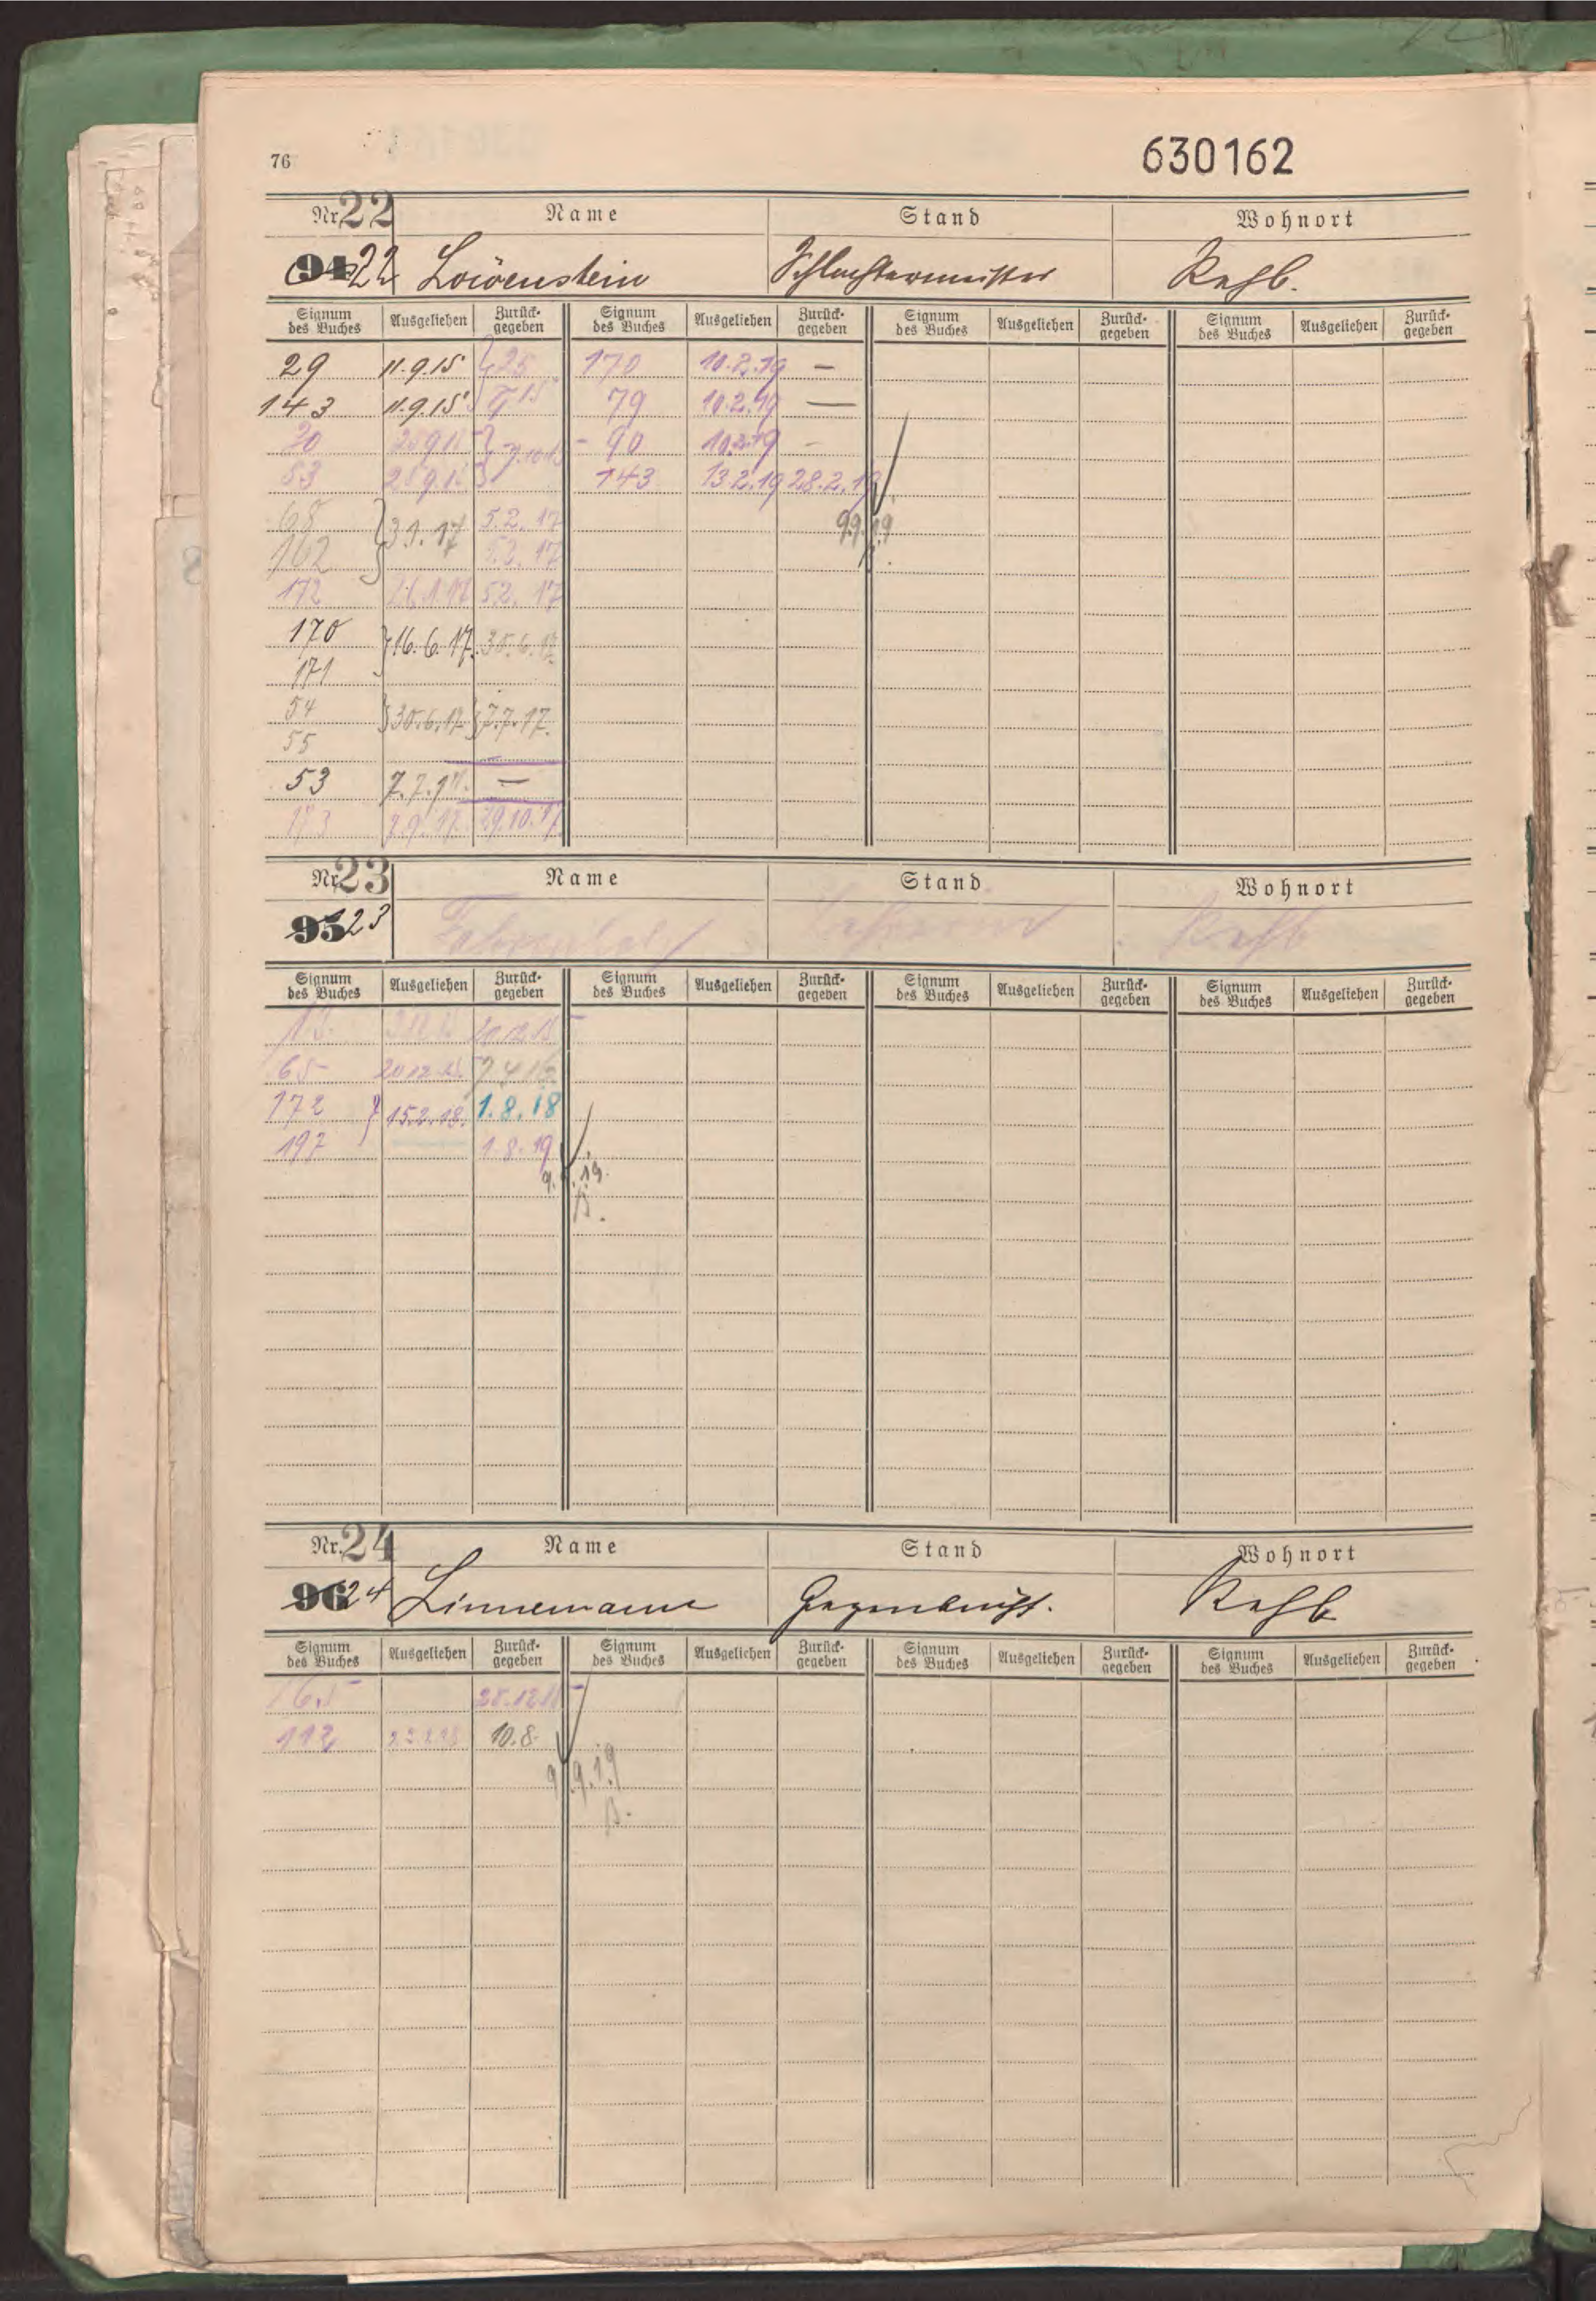 76
630162
Nr. 22 Name Stand Wohnort
94 22 Löwenstein Schlachtermeister Rehb.
Signum des Buches Ausgeliehen Zurück-gegeben Signum des Buches Ausgeliehen Zurück-gegeben Signum des Buches Ausgeliehen Zurück-gegeben Signum des Buches Ausgeliehen Zurück-gegeben
29 11.9.15 } 25 170 10.2.19 —
143 11.9.15 9 15 79 10.2.19 —
20 } 90 10.2.19 -
53 143 13.2.19 28.2.19
68 } 5.2.17 9.9.19
162 5.2.17
172 5.2.17
170 } 16.6.17. 30.6.17.
171
54 } 30.6.17 } 7.7.17.
55
53 7.7.17. —
29.10.17
Nr. 23 Name Stand Wohnort
95 23 Rehb
Signum des Buches Ausgeliehen Zurück-gegeben Signum des Buches Ausgeliehen Zurück-gegeben Signum des Buches Ausgeliehen Zurück-gegeben Signum des Buches Ausgeliehen Zurück-gegeben
20.12.15
65 20.12.15.
172 } 15.2.18. 1.8.18
197 1.8.19
9. .19.
B.
Nr. 24 Name Stand Wohnort
96 24 Linnemann Rehb
Signum des Buches Ausgeliehen Zurück-gegeben Signum des Buches Ausgeliehen Zurück-gegeben Signum des Buches Ausgeliehen Zurück-gegeben Signum des Buches Ausgeliehen Zurück-gegeben
65
10.8.
9.9.19
B.